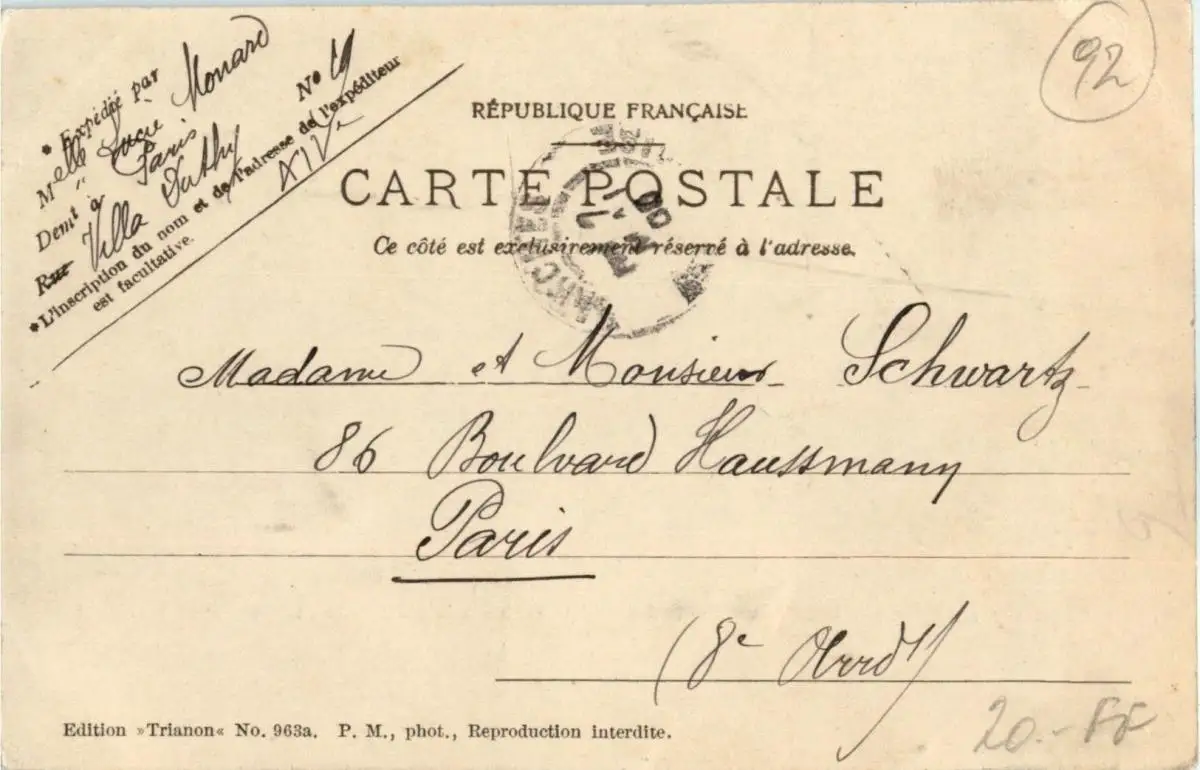 * Expédié par
Melle Lucie Monard
Demt à Paris
Rue Villa Duthy No 19
XIVe
*L'inscription du nom et de l'adresse de l'expéditeur
est facultative.
92
RÉPUBLIQUE FRANÇAISE
CARTE POSTALE
Ce côté est exclusivement réservé à l'adresse.
Madame et Monsieur Schwartz
86 Boulvard Haussmann
Paris
(8e Arrdt)
20.- FF
Edition »Trianon« No. 963a. P. M., phot., Reproduction interdite.